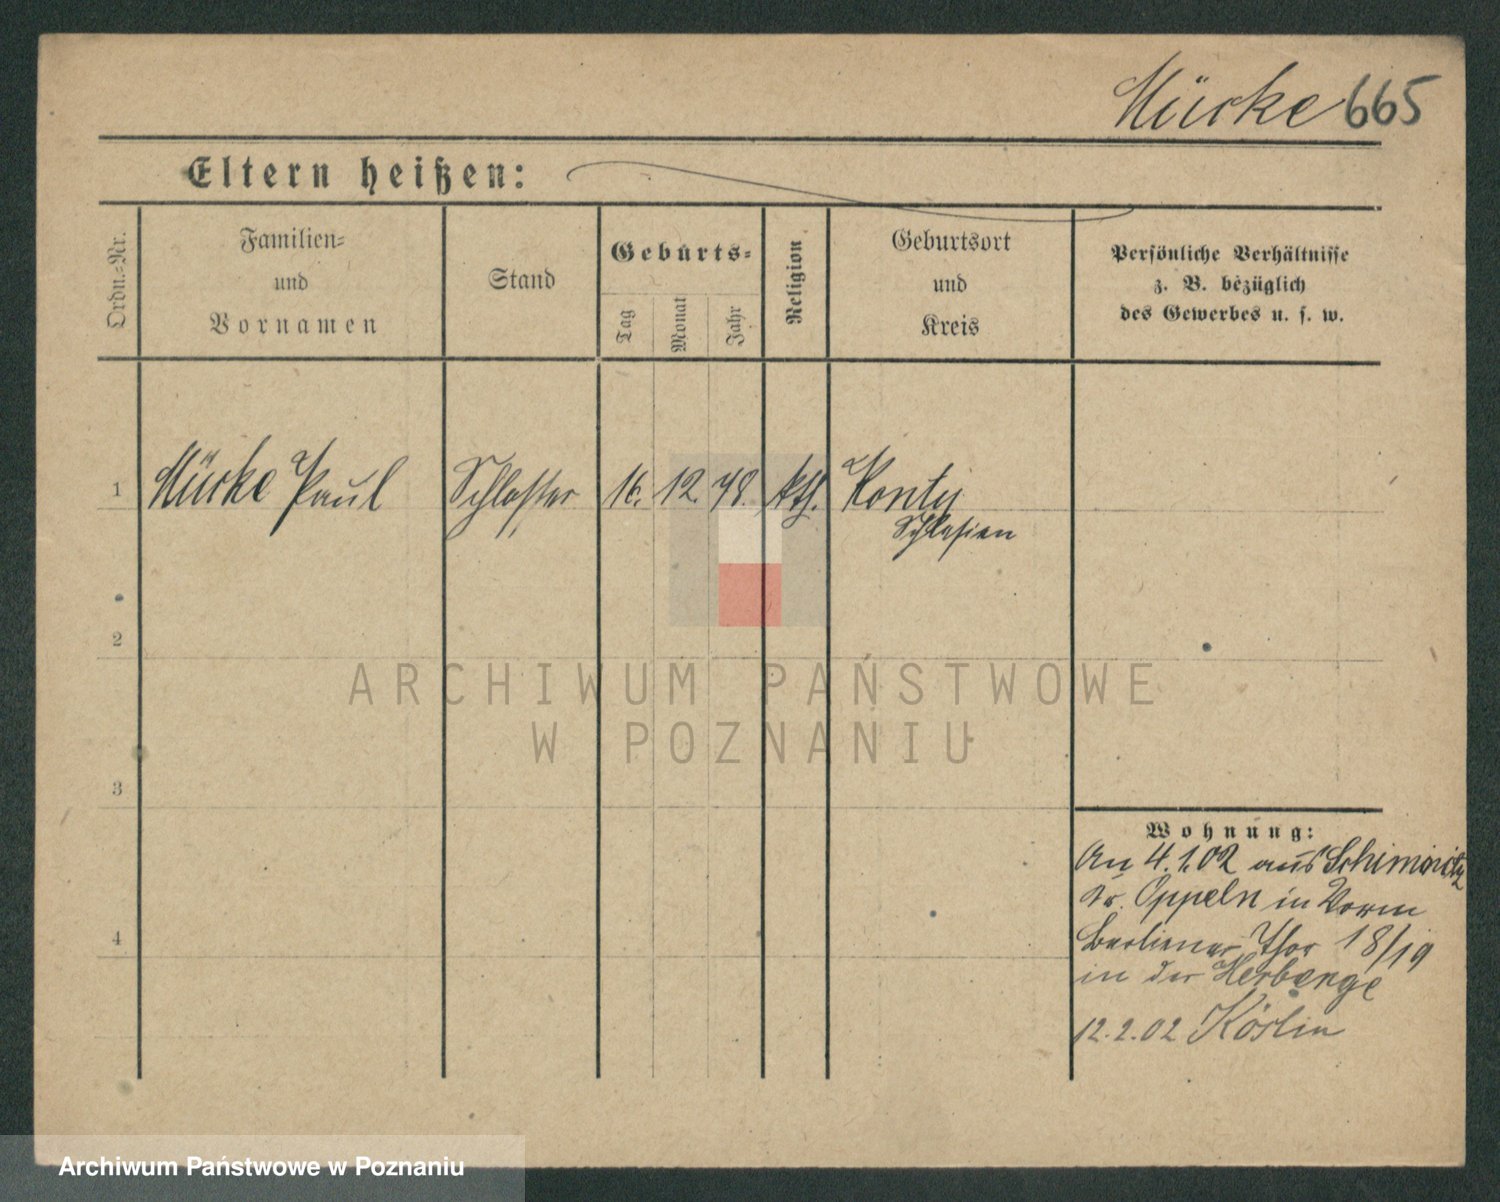 Mücke 665
Eltern heißen:
Ordn.-Nr.
Familien-
und
Vornamen
Stand
Geburts-
Tag
Monat
Jahr
Religion
Geburtsort
und
Kreis
Persönliche Verhältnisse
z. B. bezüglich
des Gewerbes u. s. w.
1 Mücke Paul Schlosser 16. 12. 48. kth. Konty
Schlesien
2
3
4
ARCHIWUM PAŃSTWOWE
W POZNANIU
Wohnung:
An 4.1.02 aus
Kr. Oppeln in
Berliner Thor 18/19
in der Herberge
12.2.02 Köslin
Archiwum Państwowe w Poznaniu